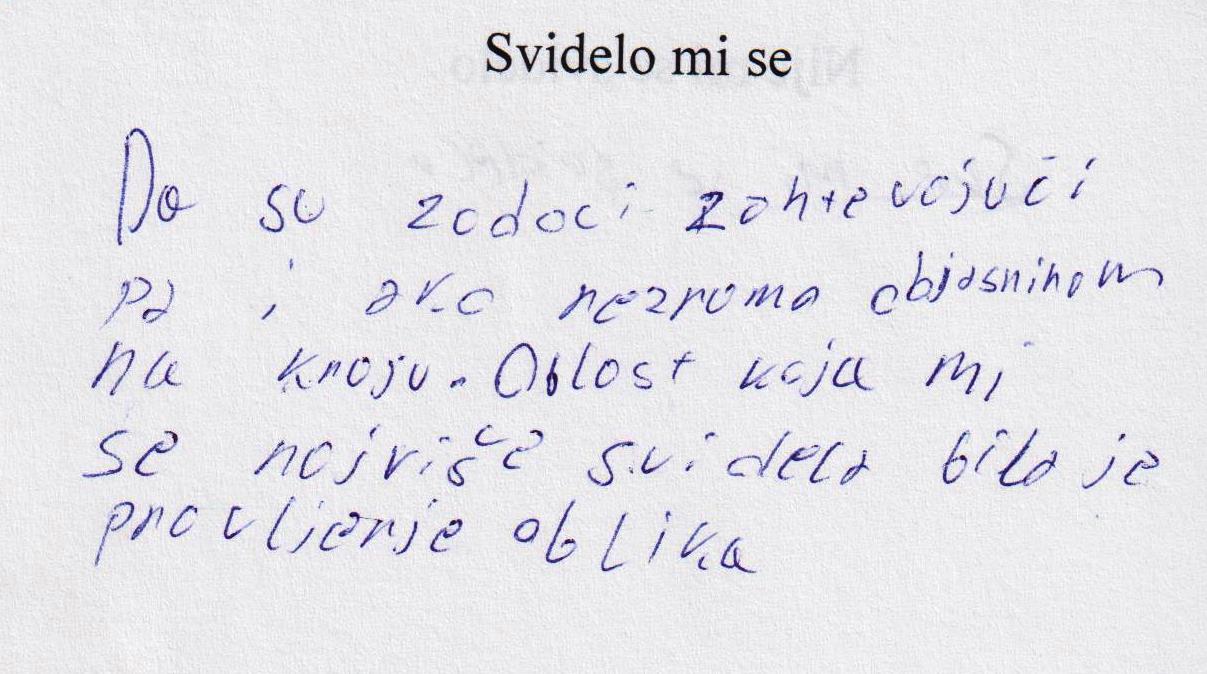 Svidelo mi se
Da su zadaci zahtevajući
pa i ako neznamo objasninam
na kraju. Oblast koja mi
se najviše svidela bila je
pravljenje oblika